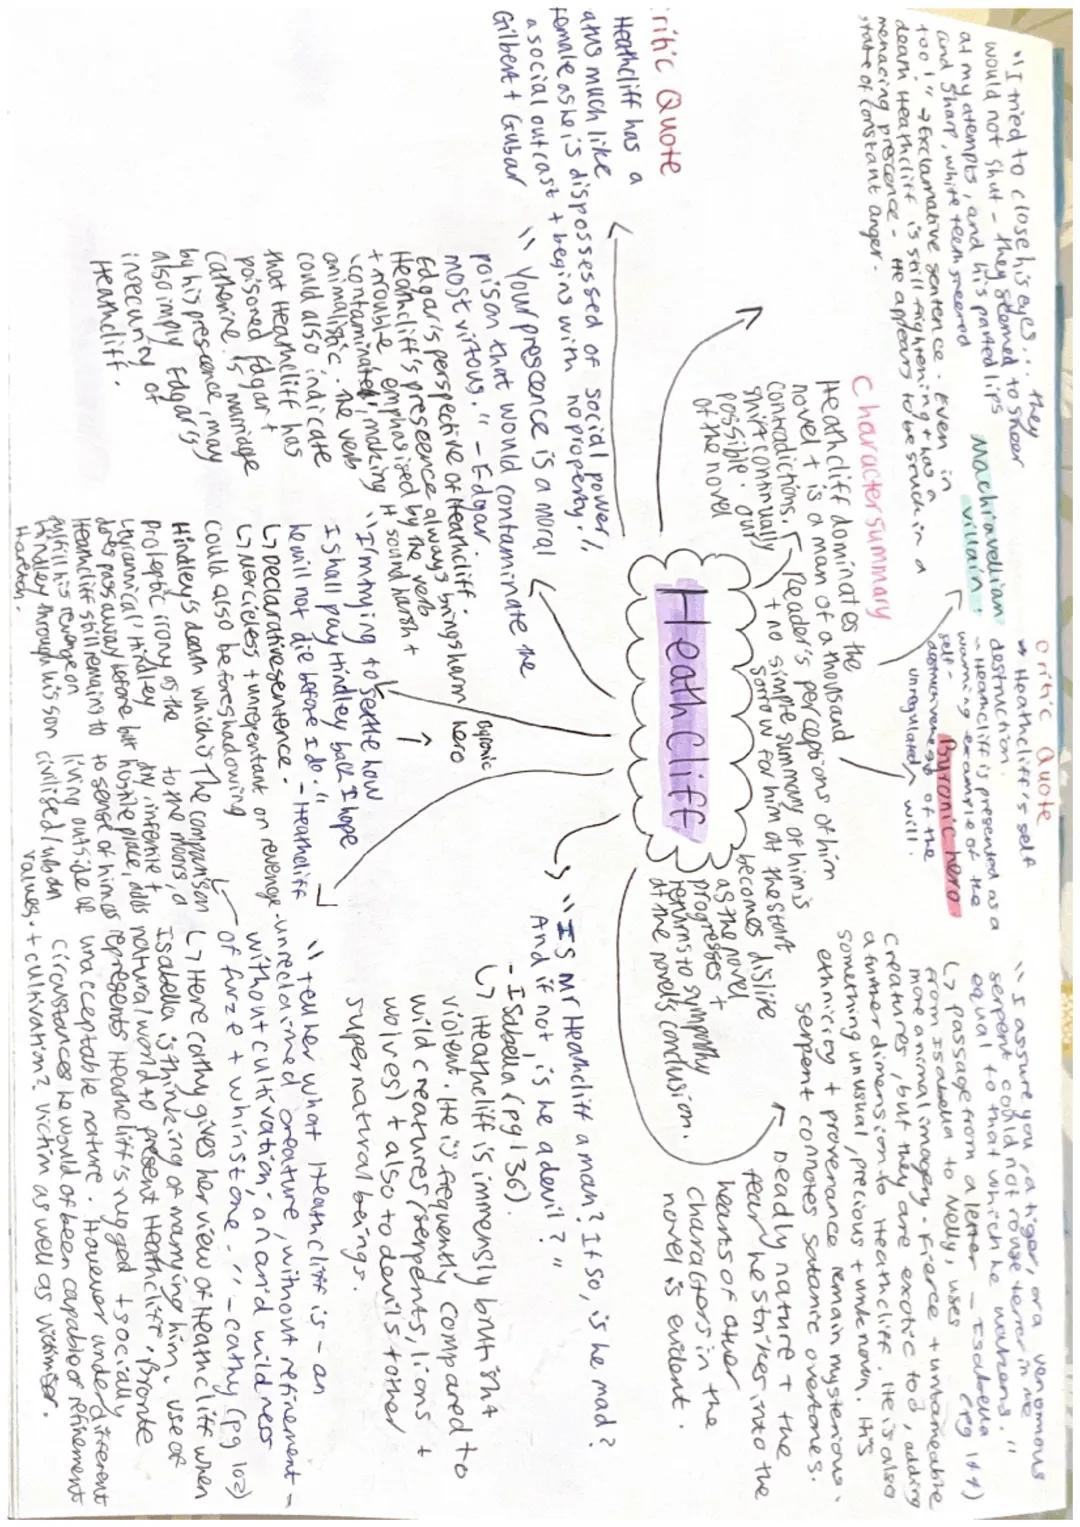 "I tried to close his eyes... they
would not shut - they seemed to sneer
at my atempts, and his parted lips
and sharp, white teeth sneered
too!" → Exclamative sentence. Even in
death Heathcliff is still frightening + has a
menacing prescence - He appears to be stuck in a
state of constant anger.
Machiavellian
villain.
Critic Quote
→ Heathcliff's self
destruction.
- Heathcliff is presented as a
warning example of the
self-
destructiveness of the
unregulated will.
Byronic hero
"I assure you, a tiger, or a venomous
serpent could not rouse terror in me
equal to that which he wakens."
↳ passage from a letter - Isabella (pg 144)
from Isabella to Nelly, uses
more animal imagery. Fierce + untameable
creatures, but they are exotic too, adding
a further dimension to Heathcliff. He is also
something unusual, precious + unknown. His
ethnicity + provenance remain mysterious.
serpent connotes satanic overtones.
Deadly nature + the
fear he strikes into the
hearts of other
characters in the
novel is evident.
Character summary
Heathcliff dominates the
novel + is a man of a thousand
contradictions. Reader's perceptions of him
shift continually + no simple summary of him is
possible. our sorrow for him at the start
of the novel becomes dislike
as the novel
progresses +
returns to sympathy
at the novels conclusion.
Heathcliff
Critic Quote
Heathcliff has a
status much like
female as he is dispossessed of social power,
a social outcast + begins with no property."
Gilbert + Gubar
"Your prescence is a moral
poison that would contaminate the
most virtous." - Edgar.
Edgar's perspective of Heathcliff.
Heathcliff's presence always brings harm
+ trouble, emphasised by the verb
'contaminate', making it sound harsh +
animalistic. The verb
could also indicate
that Heathcliff has
poisoned Edgar +
Catherine's marriage
by his prescence, may
also imply Edgar's
insecurity of
Heathcliff.
Byronic
hero
"I'm trying to settle how
I shall pay Hindley back I hope
he will not die before I do." - Heathcliff
↳ Declarative sentence.
↳ Merciless + unrepentant on revenge.
Could also be foreshadowing
Hindley's death which is
proleptic irony as the
tyrannical Hindley
does pass away before but
Heathcliff still remains to
fulfill his revenge on
Hindley through his son
Hareton.
"Is Mr Heathcliff a man? If so, is he mad?
And if not, is he a devil?"
- Isabella (pg 136).
↳ Heathcliff is immensely brutish +
violent. He is frequently compared to
wild creatures (serpents, lions +
wolves) + also to devils + other
supernatural beings.
"tell her what Heathcliff is - an
unreclaimed creature, without refinement -
without cultivation; an arid wildness
of furze + whinstone." - Cathy (pg 102)
↳ Here Cathy gives her view of Heathcliff when
Isabella is thinking of marrying him. use of
natural world to present Heathcliff. Bronte
represents Heathcliff's rugged + socially
unacceptable nature. However under different
circumstances he would of been capable of refinement
+ cultivation? Victim as well as victimiser.
The comparison
to the moors, a
dry infertile +
hostile place, adds
to sense of him as
living outside of
civilised/urban
values.